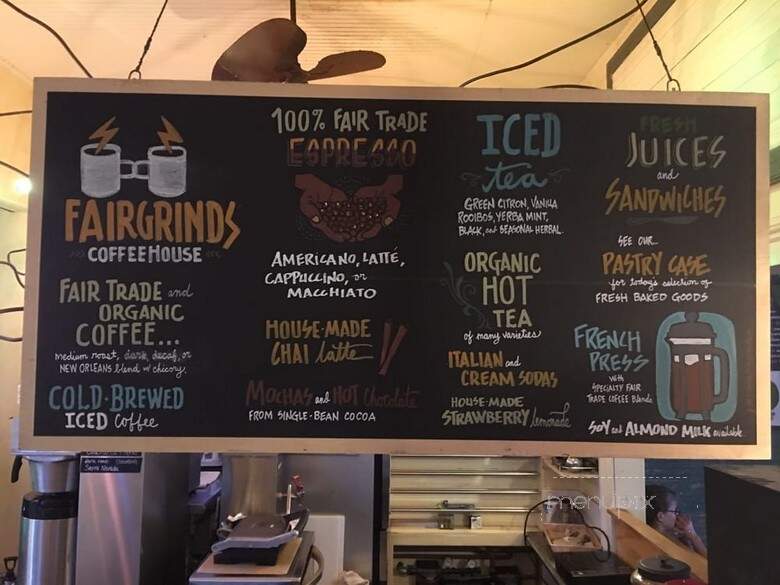 FAIRGRINDS
COFFEEHOUSE
FAIR TRADE and
ORGANIC
COFFEE...
medium roast, dark, decaf, or
NEW ORLEANS blend w/ chicory.
COLD-BREWED
ICED Coffee
100% FAIR TRADE
ESPRESSO
AMERICANO, LATTÉ,
CAPPUCCINO, or
MACCHIATO
HOUSE-MADE
CHAI latte
MOCHAS and HOT Chocolate
FROM SINGLE-BEAN COCOA
ICED
tea
GREEN CITRON, VANILLA
ROOIBOS, YERBA MINT,
BLACK, and SEASONAL HERBAL.
ORGANIC
HOT
TEA
of many varieties
ITALIAN and
CREAM SODAS
HOUSE-MADE
STRAWBERRY lemonade
FRESH
JUICES
and
SANDWICHES
SEE OUR...
PASTRY CASE
for today's selection of
FRESH BAKED GOODS
FRENCH
PRESS
with
SPECIALTY FAIR
TRADE COFFEE Blends
SOY and ALMOND MILK available
menupix